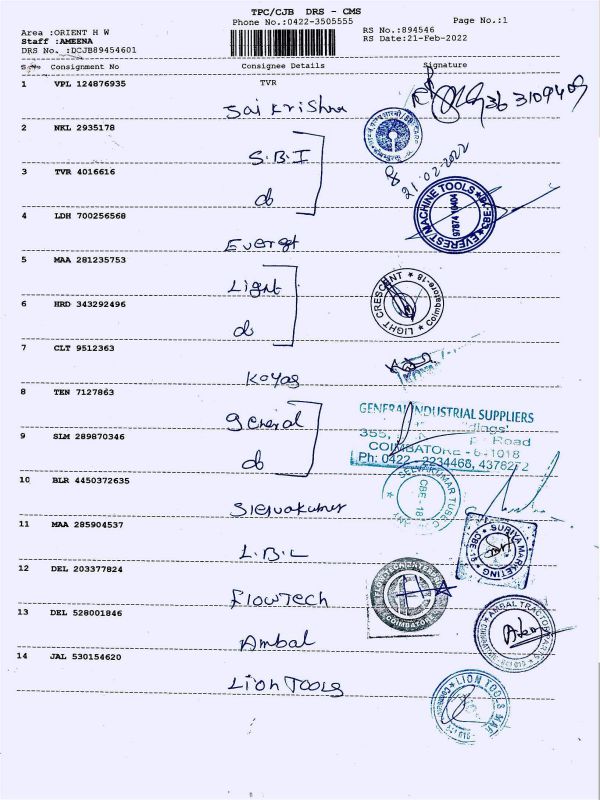 TPC/CJB DRS - CMS
Phone No.:0422-3505555
Page No.:1
Area :ORIENT H W
RS No.:894546
Staff :AMEENA
RS Date:21-Feb-2022
DRS No. :DCJB89454601
Consignment No Consignee Details Signature
1 VPL 124876935 TVR
Sai Krishna
2 NKL 2935178
S.B.I
21-02-2022
3 TVR 4016616
do
EVEREST MACHINE TOOLS CBE
97874 10404
4 LDH 700256568
Everest
5 MAA 281235753
Light
LIGHT CRESCENT Coimbatore-18
6 HRD 343292496
do
7 CLT 9512363
Koyas
8 TEN 7127863
General
GENERAL INDUSTRIAL SUPPLIERS
355, Road
COIMBATORE - 641018
Ph: 0422 - 2234468, 4378272
9 SLM 289870346
do
SELVAKUMAR TUBE
CBE-18
10 BLR 4450372635
Selvakumar
11 MAA 285904537
L.B.L
SURIYA MARKETING CBE
12 DEL 203377824
Flowtech
COIMBATORE
13 DEL 528001846
Ambal
AMBAL TRACTOR PARTS
14 JAL 530154620
Lion Tools
LION TOOLS